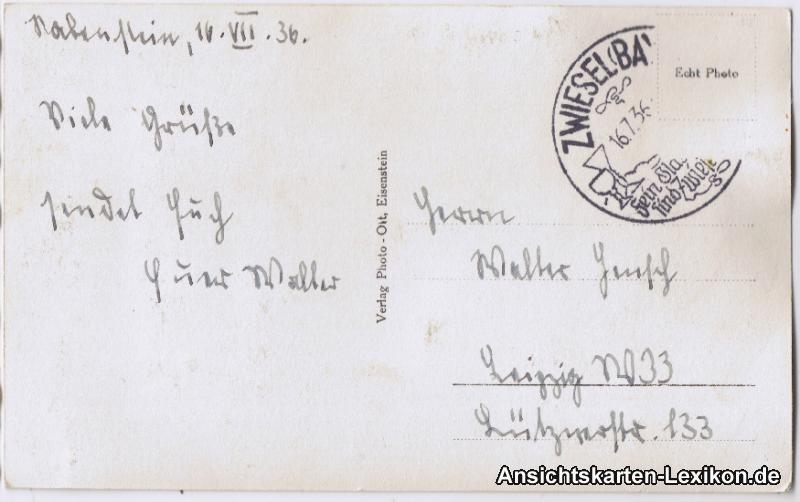 Rabenstein, 16. VII. 36.
Viele Grüße
sendet Euch
Euer Walter
Verlag Photo-Ott, Eisenstein
ZWIESEL (BA
16.7.36
Echt Photo
Herrn
Walter
Leipzig W33
Lütznerstr. 133
Ansichtskarten-Lexikon.de